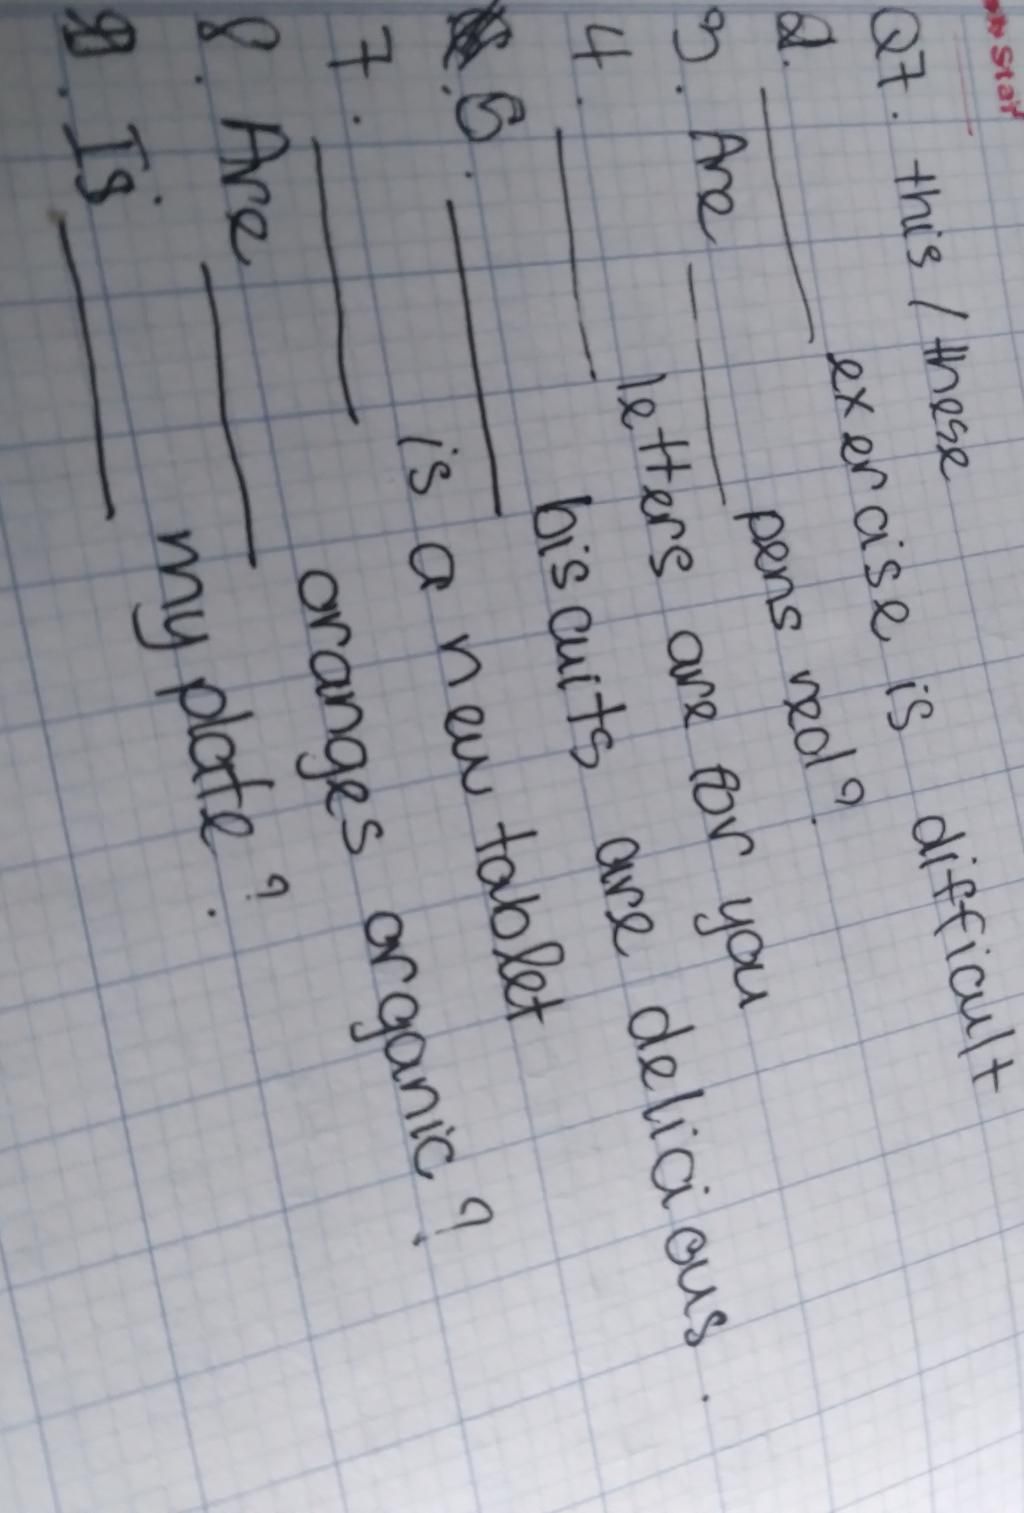 Stat
Q7. this / these
2. ________ exercise is difficult
3. Are ________ pens red?
4. ________ letters are for you
6. ________ biscuits are delicious.
7. ________ is a new tablet
8. Are ________ oranges organic?
9. Is ________ my plate?